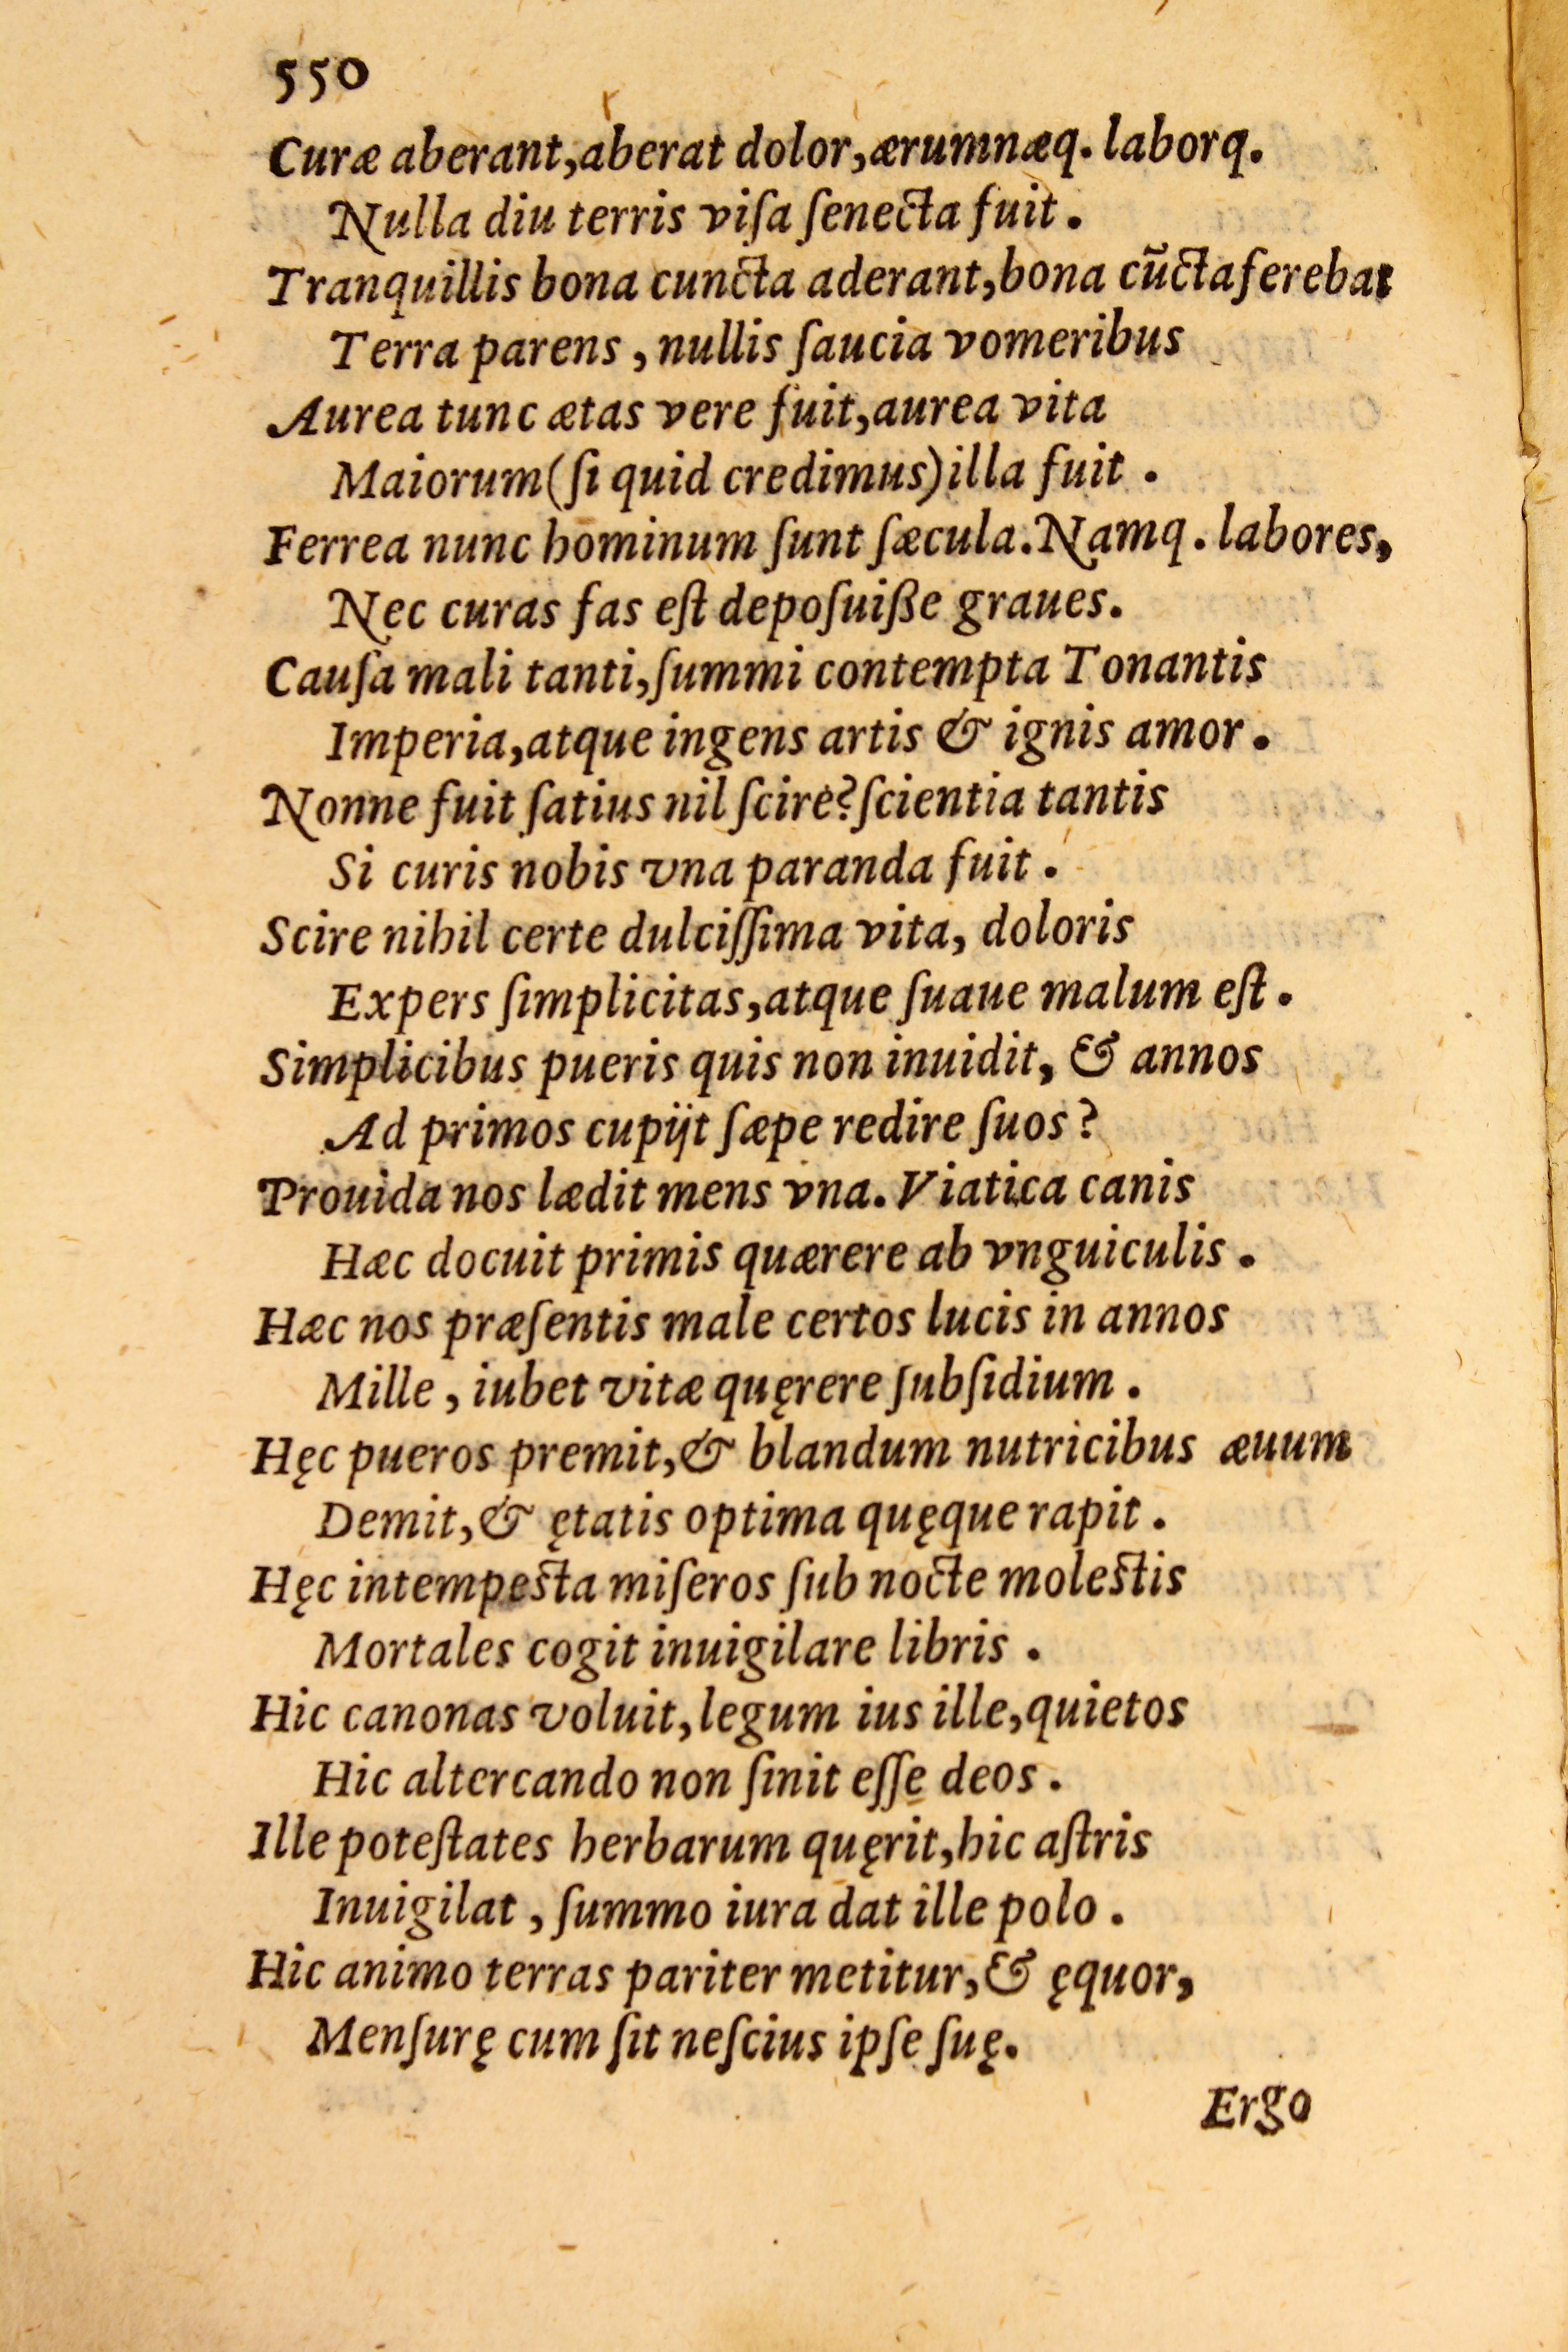 550
Curæ aberant,aberat dolor,ærumnæq. laborq.
Nulla diu terris viſa ſenecta fuit.
Tranquillis bona cuncta aderant,bona cũcta ferebat
Terra parens , nullis ſaucia vomeribus
Aurea tunc ætas vere fuit,aurea vita
Maiorum(ſi quid credimus)illa fuit .
Ferrea nunc hominum ſunt ſæcula.Namq. labores,
Nec curas fas eſt depoſuiße graues.
Cauſa mali tanti,ſummi contempta Tonantis
Imperia,atque ingens artis & ignis amor.
Nonne fuit ſatius nil ſcire?ſcientia tantis
Si curis nobis vna paranda fuit .
Scire nihil certe dulciſſima vita, doloris
Expers ſimplicitas,atque ſuaue malum eſt .
Simplicibus pueris quis non inuidit, & annos
Ad primos cupijt ſæpe redire ſuos ?
Prouida nos lædit mens vna. Viatica canis
Hæc docuit primis quærere ab vnguiculis .
Hæc nos præſentis male certos lucis in annos
Mille , iubet vitæ quęrere ſubſidium .
Hęc pueros premit,& blandum nutricibus æuum
Demit,& ętatis optima quęque rapit .
Hęc intempeſta miſeros ſub nocte moleſtis
Mortales cogit inuigilare libris .
Hic canonas voluit,legum ius ille,quietos
Hic altercando non ſinit eſſe deos .
Ille poteſtates herbarum quęrit,hic aſtris
Inuigilat , ſummo iura dat ille polo .
Hic animo terras pariter metitur,& ęquor,
Menſurę cum ſit neſcius ipſe ſuę.
Ergo